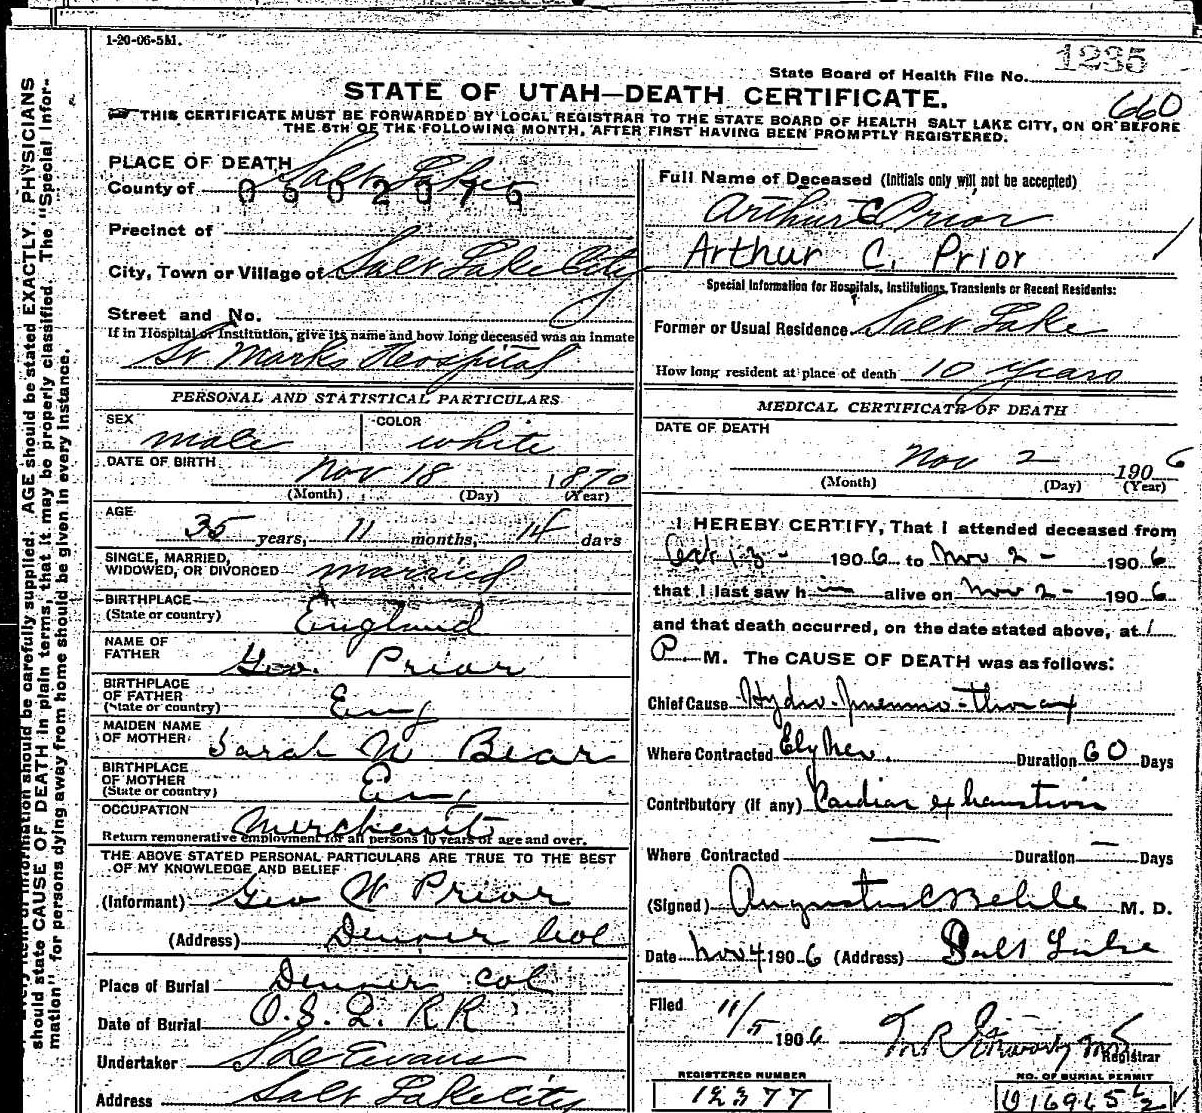 1-20-06-5M.
1235
State Board of Health File No.
660
STATE OF UTAH—DEATH CERTIFICATE.
THIS CERTIFICATE MUST BE FORWARDED BY LOCAL REGISTRAR TO THE STATE BOARD OF HEALTH SALT LAKE CITY, ON OR BEFORE
THE 5TH OF THE FOLLOWING MONTH, AFTER FIRST HAVING BEEN PROMPTLY REGISTERED.
PLACE OF DEATH
County of Salt Lake
0602076
Precinct of
City, Town or Village of Salt Lake City
Street and No.
If in Hospital or Institution, give its name and how long deceased was an inmate
St Marks Hospital
Full Name of Deceased (Initials only will not be accepted)
Arthur C Prior
Arthur C. Prior
Special Information for Hospitals, Institutions, Transients or Recent Residents:
Former or Usual Residence Salt Lake
How long resident at place of death 10 years
PERSONAL AND STATISTICAL PARTICULARS
SEX male COLOR white
DATE OF BIRTH Nov 18 1870
(Month) (Day) (Year)
AGE
35 years, 11 months, 14 days
SINGLE, MARRIED,
WIDOWED, OR DIVORCED married
BIRTHPLACE
(State or country) England
NAME OF
FATHER Geo. Prior
BIRTHPLACE
OF FATHER
(State or country) Eng
MAIDEN NAME
OF MOTHER Sarah W Bear
BIRTHPLACE
OF MOTHER
(State or country) Eng
OCCUPATION Merchant
Return remunerative employment for all persons 10 years of age and over.
THE ABOVE STATED PERSONAL PARTICULARS ARE TRUE TO THE BEST
OF MY KNOWLEDGE AND BELIEF
(Informant) Geo W Prior
(Address) Denver Col
Place of Burial Denver Col
Date of Burial O.S.L. RR
Undertaker Evans
Address Salt Lake City
MEDICAL CERTIFICATE OF DEATH
DATE OF DEATH
Nov 2 1906
(Month) (Day) (Year)
I HEREBY CERTIFY, That I attended deceased from
Oct 13 - 1906 to Nov 2 - 1906
that I last saw him alive on Nov 2 - 1906
and that death occurred, on the date stated above, at 1
P M. The CAUSE OF DEATH was as follows:
Chief Cause Hydro-pneumo-thorax
Where Contracted Ely Nev. Duration 60 Days
Contributory (if any) Cardiac exhaustion
Where Contracted — Duration — Days
(Signed) Augustus C Behle M. D.
Date Nov 4 1906 (Address) Salt Lake
Filed 11/5 1906
Registrar
REGISTERED NUMBER
12377
NO. OF BURIAL PERMIT
016965 1/2
should be carefully supplied. AGE should be stated EXACTLY. PHYSICIANS
should state CAUSE OF DEATH in plain terms, that it may be properly classified. The "Special Infor-
mation" for persons dying away from home should be given in every instance.